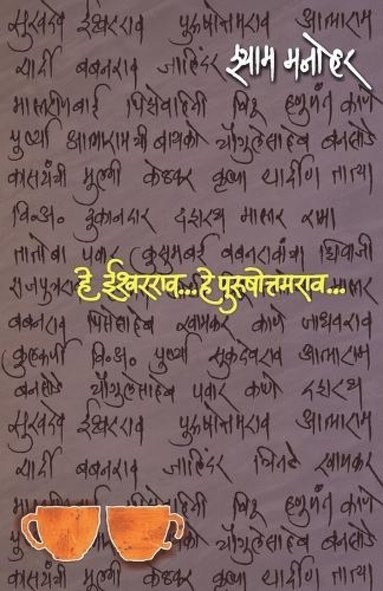 सुखदेव ईश्वरराव पुरुषोत्तमराव आत्माराम
यार्दी बबनराव जालिंदर
श्याम मनोहर
मालतीणबाई पिसेवाहिनी बिट्टू हणुमंत काणे
पुष्पी आत्मारामची बायको चौगुलेसाहेब बनसोडे
कासवंत्री मुलगी केळकर कृष्णा यार्दीण तात्या
बि.अ. दुकानदार दशरथ मालर रमा
तातोबा पवार कुसुमबाई बबनरावांचा शिवाजी
हे ईश्वरराव...हे पुरुषोत्तमराव...
बबनराव पिसेसाहेब खामकर काणे जाधवराव
कुलकर्णी बि.अ. पुष्पी सुकदेवराव आत्माराम
बनसोडे चौगुलेसाहेब पवार काणे दशरथ
सुखदेव ईश्वरराव पुरुषोत्तमराव आत्माराम
यार्दी बबनराव जालिंदर खामकर
बिट्टू हणुमंत काणे
चौगुलेसाहेब बनसोडे
मुलगी केळकर कृष्णा यार्दीण तात्या